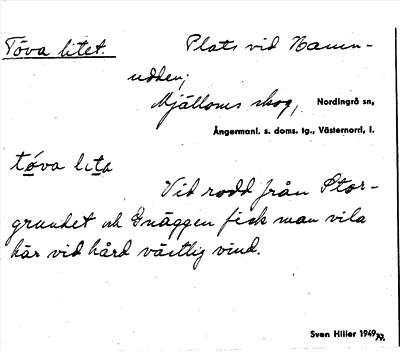 Töva litet. Plats vid Hamn-
udden,
Mjälloms skog, Nordingrå sn,
Ångermanl. s. doms. tg., Västernorrl. l.
tóva lita
Vid rodd från Stor-
grundet och Gnäggen fick man vila
här vid hård västlig vind.
Sven Hiller 1949